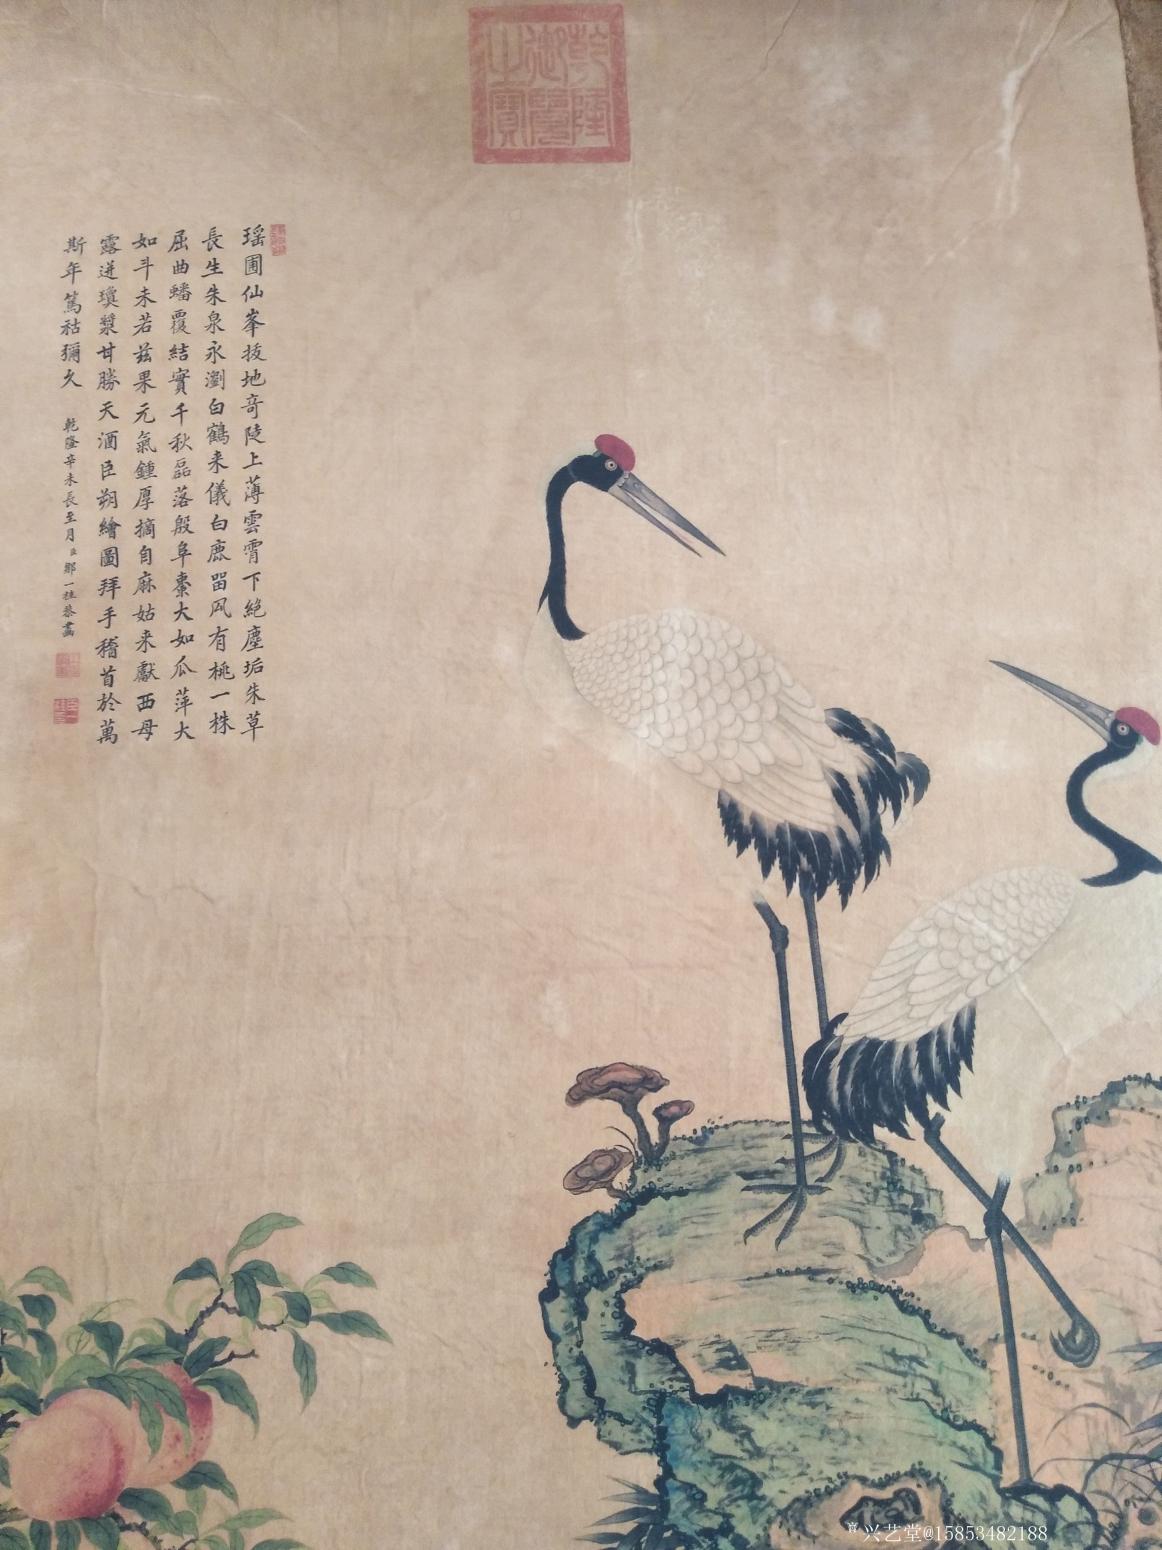 乾隆御覽之寶
瑶圃仙峯拔地奇陡上薄雲霄下絶塵垢朱草
長生朱泉永瀏白鶴来儀白鹿畱風有桃一株
屈曲蟠覆結實千秋磊落殷阜棗大如瓜萍大
如斗未若兹果元氣鍾厚摘自麻姑来獻西母
露逬瓊漿甘勝天酒臣朔繪圖拜手稽首於萬
斯年篤祜彌久
乾隆辛未長至月臣鄒一桂恭畫
兴艺堂@15853482188